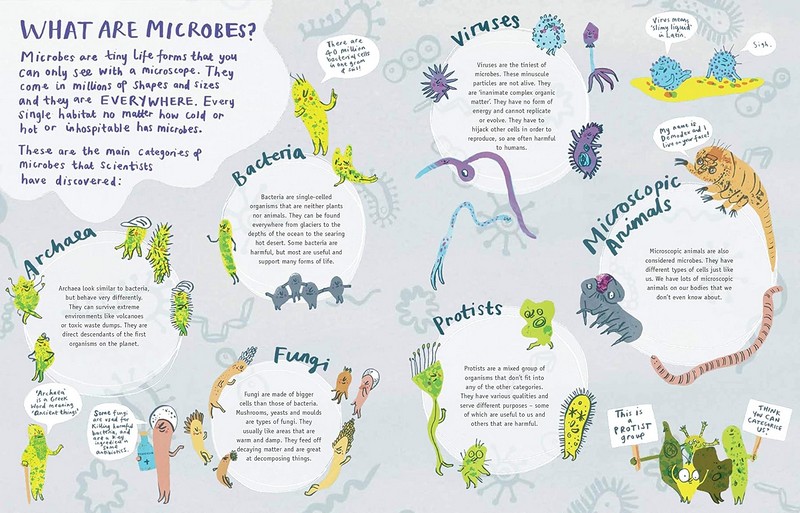 WHAT ARE MICROBES?
Microbes are tiny life forms that you
can only see with a microscope. They
come in millions of shapes and sizes
and they are EVERYWHERE. Every
single habitat no matter how cold or
hot or inhospitable has microbes.
These are the main categories of
microbes that scientists
have discovered:
There are
40 million
bacterial cells
in one gram
of soil!
Bacteria
Bacteria are single-celled
organisms that are neither plants
nor animals. They can be found
everywhere from glaciers to the
depths of the ocean to the searing
hot desert. Some bacteria are
harmful, but most are useful and
support many forms of life.
Archaea
Archaea look similar to bacteria,
but behave very differently.
They can survive extreme
environments like volcanoes
or toxic waste dumps. They are
direct descendants of the first
organisms on the planet.
"Archaea"
is a Greek
word meaning
"ancient things"
Fungi
Fungi are made of bigger
cells than those of bacteria.
Mushrooms, yeasts and moulds
are types of fungi. They
usually like areas that are
warm and damp. They feed off
decaying matter and are great
at decomposing things.
Some fungi
are used for
killing harmful
bacteria, and
are a key
ingredient in
some
antibiotics.
Viruses
Viruses are the tiniest of
microbes. These minuscule
particles are not alive. They are
'inanimate complex organic
matter'. They have no form of
energy and cannot replicate
or evolve. They have to
hijack other cells in order to
reproduce, so are often harmful
to humans.
Virus means
'slimy liquid'
in Latin.
Sigh.
My name is
Demodex and I
live on your face!
Microscopic
Animals
Microscopic animals are also
considered microbes. They have
different types of cells just like
us. We have lots of microscopic
animals on our bodies that we
don't even know about.
Protists
Protists are a mixed group of
organisms that don't fit into
any of the other categories.
They have various qualities and
serve different purposes – some
of which are useful to us and
others that are harmful.
This is
PROTIST
group
THINK
YOU CAN
CATEGORISE
US?